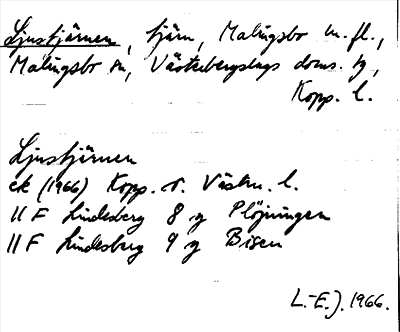 Ljustjärnen, tjärn, Malingsbo m.fl.,
Malingsbo sn, Västerbergslags doms. tg,
Kopp. l.
Ljustjärnen
ek (1966) Kopp. o. Västm. l.
11 F Lindesberg 8 g Plöjningen
11 F Lindesberg 9 g Bisen
L.-E.J. 1966.